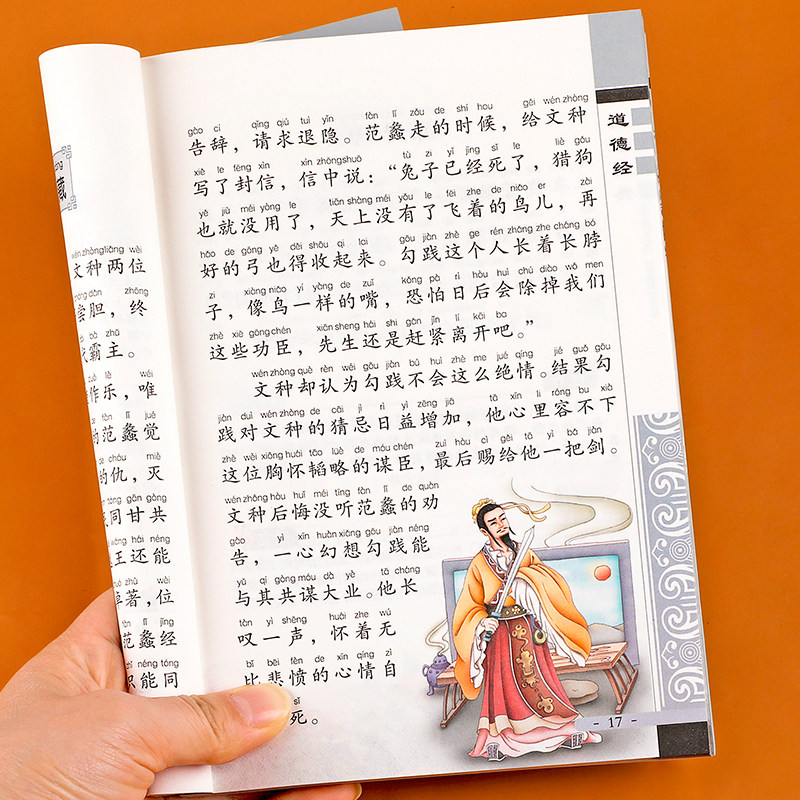 藏
wén zhǒng liǎng wèi
文种两位
cháng dǎn zhōng
尝胆，终
bà zhǔ
霸主。
zuò lè wéi
作乐，唯
fàn lǐ jué
的范蠡觉
de chóu miè
的仇，灭
tóng gān gòng
同甘共
wáng hái néng
王还能
zhuó zhù wèi
著，位
fàn lǐ jīng
范蠡经
zhǐ néng tóng
只能同
道德经
gào cí qǐng qiú tuì yǐn fàn lǐ zǒu de shí hou gěi wén zhǒng
告辞，请求退隐。范蠡走的时候，给文种
xiě le fēng xìn xìn zhōng shuō tù zi yǐ jīng sǐ le liè gǒu
写了封信，信中说：“兔子已经死了，猎狗
yě jiù méi yòng le tiān shàng méi yǒu le fēi zhe de niǎo er zài
也就没用了，天上没有了飞着的鸟儿，再
hǎo de gōng yě děi shōu qǐ lai gōu jiàn zhè ge rén zhǎng zhe cháng bó
好的弓也得收起来。勾践这个人长着长脖
zi xiàng niǎo yí yàng de zuǐ kǒng pà rì hòu huì chú diào wǒ men
子，像鸟一样的嘴，恐怕日后会除掉我们
zhè xiē gōng chén xiān sheng hái shi gǎn jǐn lí kāi ba
这些功臣，先生还是赶紧离开吧。”
wén zhǒng què rèn wéi gōu jiàn bú huì zhè me jué qíng jié guǒ gōu
文种却认为勾践不会这么绝情。结果勾
jiàn duì wén zhǒng de cāi jì rì yì zēng jiā tā xīn li róng bu xià
践对文种的猜忌日益增加，他心里容不下
zhè wèi xiōng huái tāo lüè de móu chén zuì hòu cì gěi tā yì bǎ jiàn
这位胸怀韬略的谋臣，最后赐给他一把剑。
wén zhǒng hòu huǐ méi tīng fàn lǐ de quàn
文种后悔没听范蠡的劝
gào yì xīn huàn xiǎng gōu jiàn néng
告，一心幻想勾践能
yǔ qí gòng móu dà yè tā cháng
与其共谋大业。他长
tàn yì shēng huái zhe wú
叹一声，怀着无
bǐ bēi fèn de xīn qíng zì
比悲愤的心情自
sǐ
死。
- 17 -